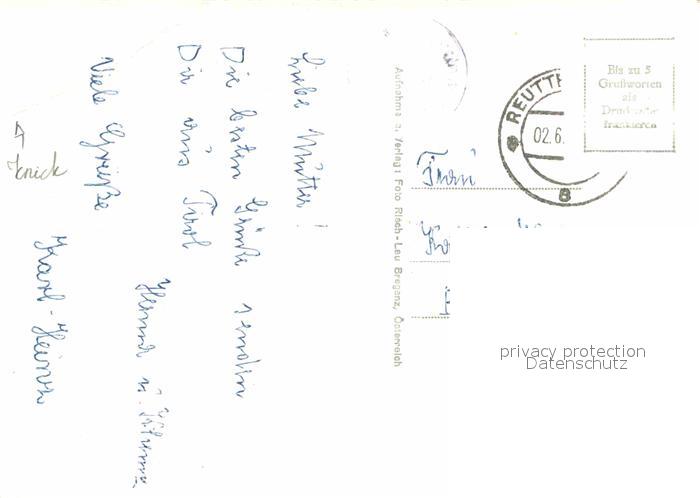 Liebe Mutter!
Die besten Grüße senden
Dir aus Tirol
Hanna u.
Viele Grüße
Karl-Heinz
Knick
Aufnahme u. Verlag: Foto Risch-Lau Bregenz, Österreich
Frau
REUTTE
02.6.
8
Bis zu 5
Grußworten
als
Drucksache
frankieren
privacy protection
Datenschutz